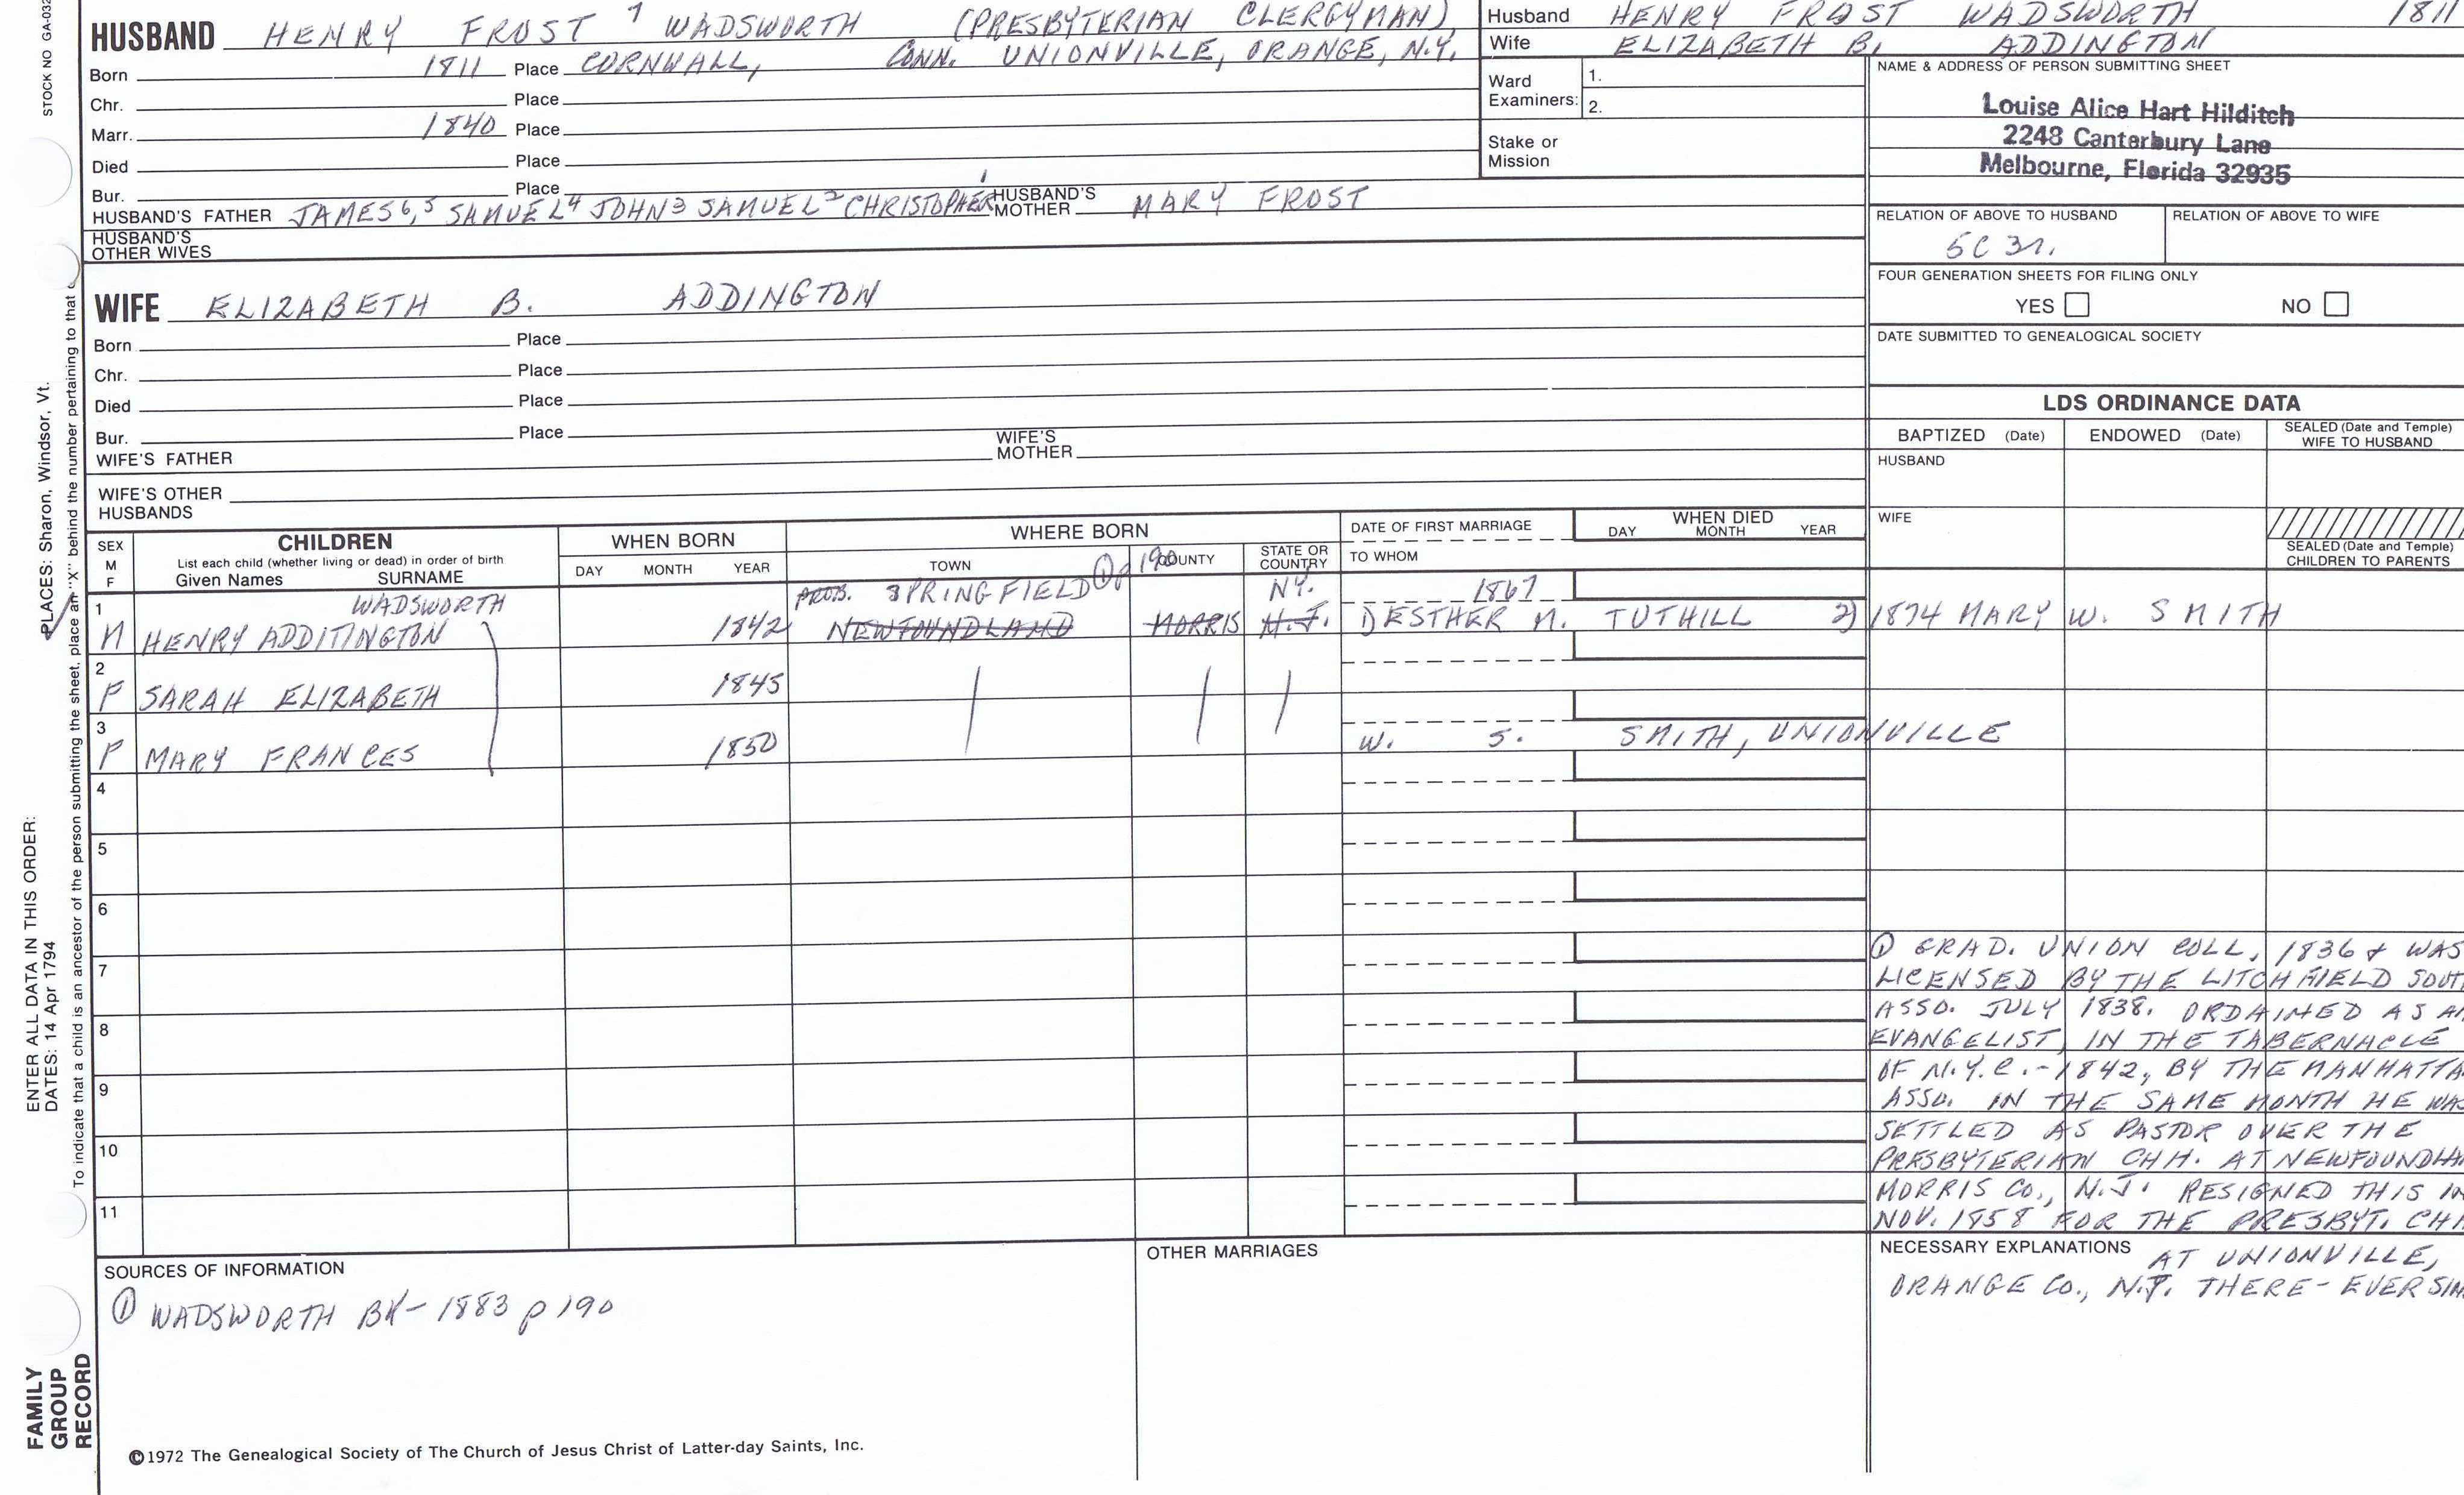 STOCK NO GA-032
HUSBAND HENRY FROST 7 WADSWORTH (PRESBYTERIAN CLERGYMAN)
Born 1811 Place CORNWALL, CONN. UNIONVILLE, ORANGE, N.Y.
Chr. Place
Marr. 1840 Place
Died Place
Bur. Place
HUSBAND'S FATHER JAMES6,5 SAMUEL4 JOHN3 SAMUEL2 CHRISTOPHER1 HUSBAND'S MOTHER MARY FROST
HUSBAND'S
OTHER WIVES
WIFE ELIZABETH B. ADDINGTON
Born Place
Chr. Place
Died Place
Bur. Place
WIFE'S FATHER WIFE'S MOTHER
WIFE'S OTHER
HUSBANDS
Husband HENRY FROST WADSWORTH 1811
Wife ELIZABETH B. ADDINGTON
Ward
Examiners: 1.
2.
Stake or
Mission
NAME & ADDRESS OF PERSON SUBMITTING SHEET
Louise Alice Hart Hilditch
2248 Canterbury Lane
Melbourne, Florida 32935
RELATION OF ABOVE TO HUSBAND RELATION OF ABOVE TO WIFE
5C 3r.
FOUR GENERATION SHEETS FOR FILING ONLY
YES NO
DATE SUBMITTED TO GENEALOGICAL SOCIETY
LDS ORDINANCE DATA
BAPTIZED (Date) ENDOWED (Date) SEALED (Date and Temple)
WIFE TO HUSBAND
HUSBAND
WIFE
SEALED (Date and Temple)
CHILDREN TO PARENTS
SEX
M
F
CHILDREN
List each child (whether living or dead) in order of birth
Given Names SURNAME
WHEN BORN
DAY MONTH YEAR
WHERE BORN
TOWN COUNTY STATE OR
COUNTRY
DATE OF FIRST MARRIAGE
TO WHOM
WHEN DIED
DAY MONTH YEAR
1 WADSWORTH PROB. SPRINGFIELD ① p 190 NY. 1867
M HENRY ADDITINGTON 1842 NEWFOUNDLAND MORRIS N.J. 1) ESTHER M. TUTHILL 2) 1874 MARY W. SMITH
2
F SARAH ELIZABETH 1845
3
F MARY FRANCES 1850 W. S. SMITH, UNIONVILLE
4
5
6
7
8
9
10
11
① GRAD. UNION COLL, 1836 & WAS
LICENSED BY THE LITCHFIELD SOUT
ASSO. JULY 1838. ORDAINED AS AN
EVANGELIST, IN THE TABERNACLE
OF N.Y.C. - 1842, BY THE MANHATTA
ASSO. IN THE SAME MONTH HE WAS
SETTLED AS PASTOR OVER THE
PRESBYTERIAN CHH. AT NEWFOUNDLA
MORRIS CO., N.J. RESIGNED THIS IN
NOV. 1858 FOR THE PRESBYT. CHH
NECESSARY EXPLANATIONS AT UNIONVILLE,
ORANGE CO., N.Y. THERE - EVER SIN
SOURCES OF INFORMATION
① WADSWORTH BK - 1883 p 190
OTHER MARRIAGES
©1972 The Genealogical Society of The Church of Jesus Christ of Latter-day Saints, Inc.
PLACES: Sharon, Windsor, Vt.
To indicate that a child is an ancestor of the person submitting the sheet, place an "X" behind the number pertaining to that
ENTER ALL DATA IN THIS ORDER:
DATES: 14 Apr 1794
FAMILY
GROUP
RECORD